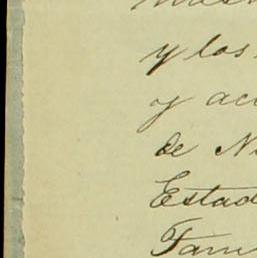 y los
y ac
de N
Estad
Fam